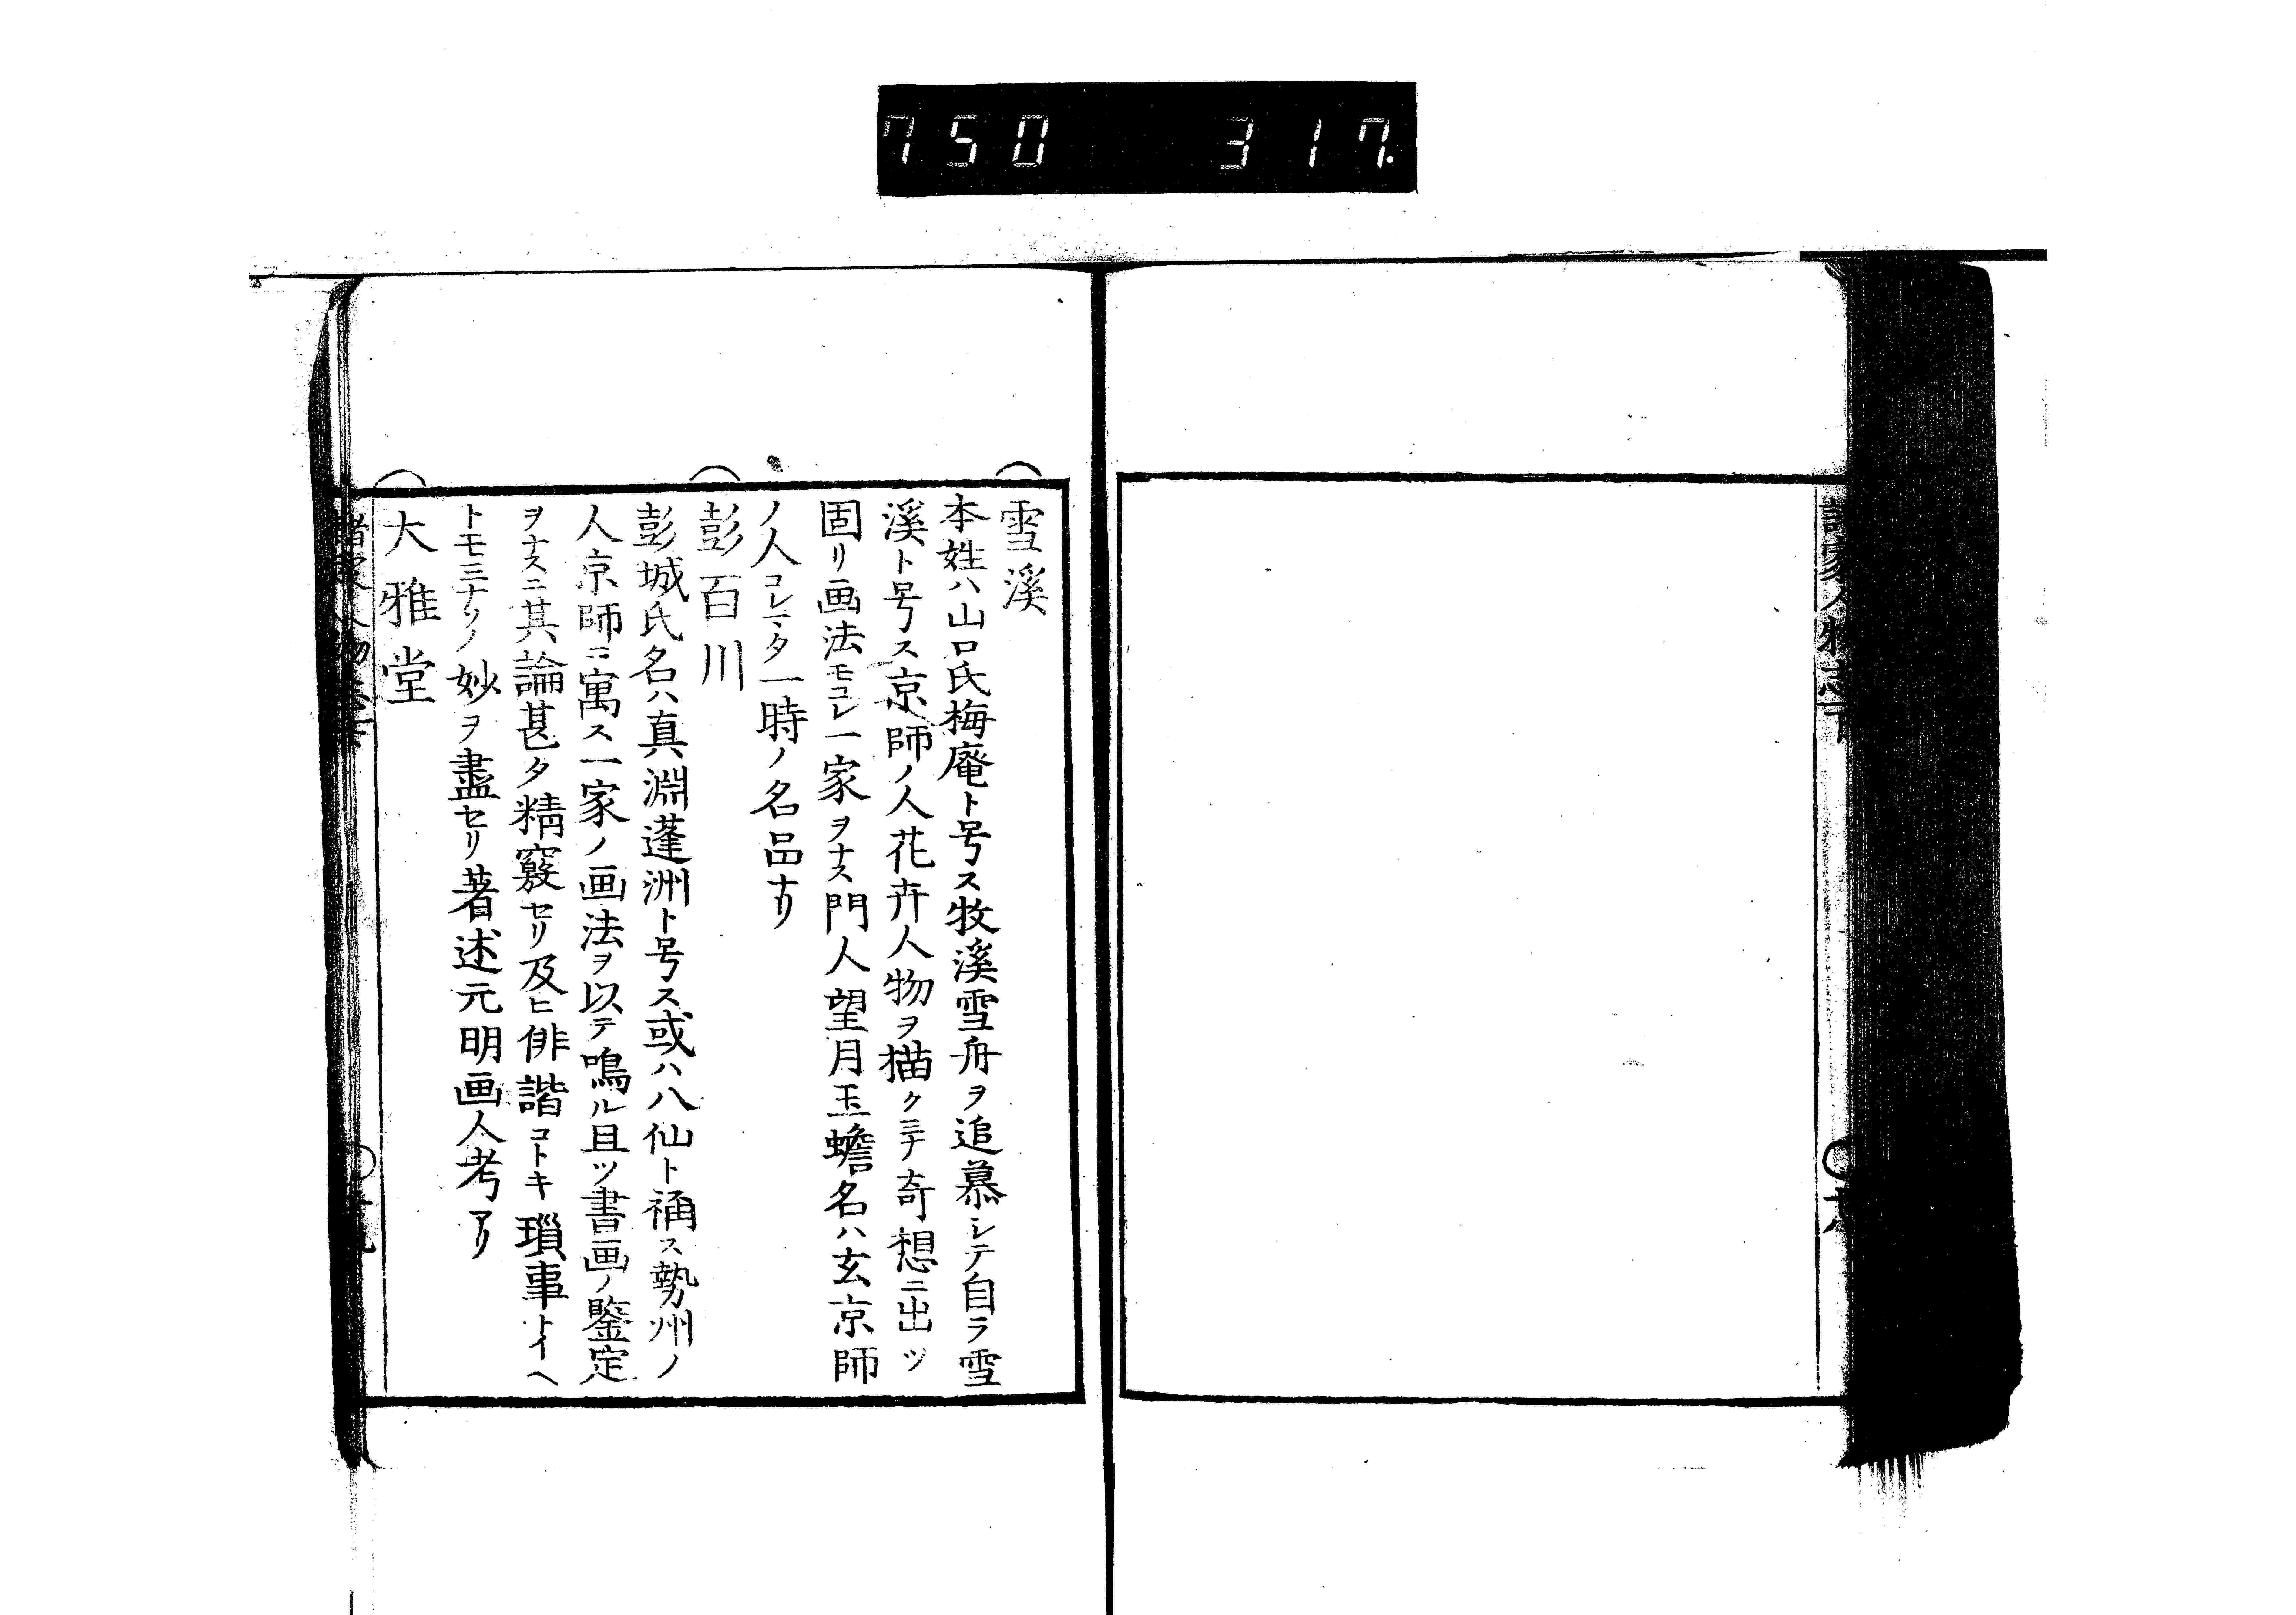 750 317.
諸家人物志下
雪溪
本姓ハ山口氏梅庵ト号ス牧溪雪舟ヲ追慕シテ自ラ雪
溪ト号ス京師ノ人花卉人物ヲ描クミナ奇想ニ出ツ
固リ画法モコレ一家ヲナス門人望月玉蟾名ハ玄京師
ノ人コレマタ一時ノ名品ナリ
彭百川
彭城氏名ハ真淵蓬洲ト号ス或ハ八仙ト稱ス勢州ノ
人京師ニ寓ス一家ノ画法ヲ以テ鳴ル且ツ書画ノ鑒定
ヲナスニ其論甚タ精竅セリ及ヒ俳諧コトキ瑣事トイヘ
トモミナソノ妙ヲ盡セリ著述元明画人考アリ
大雅堂
諸家人物志下